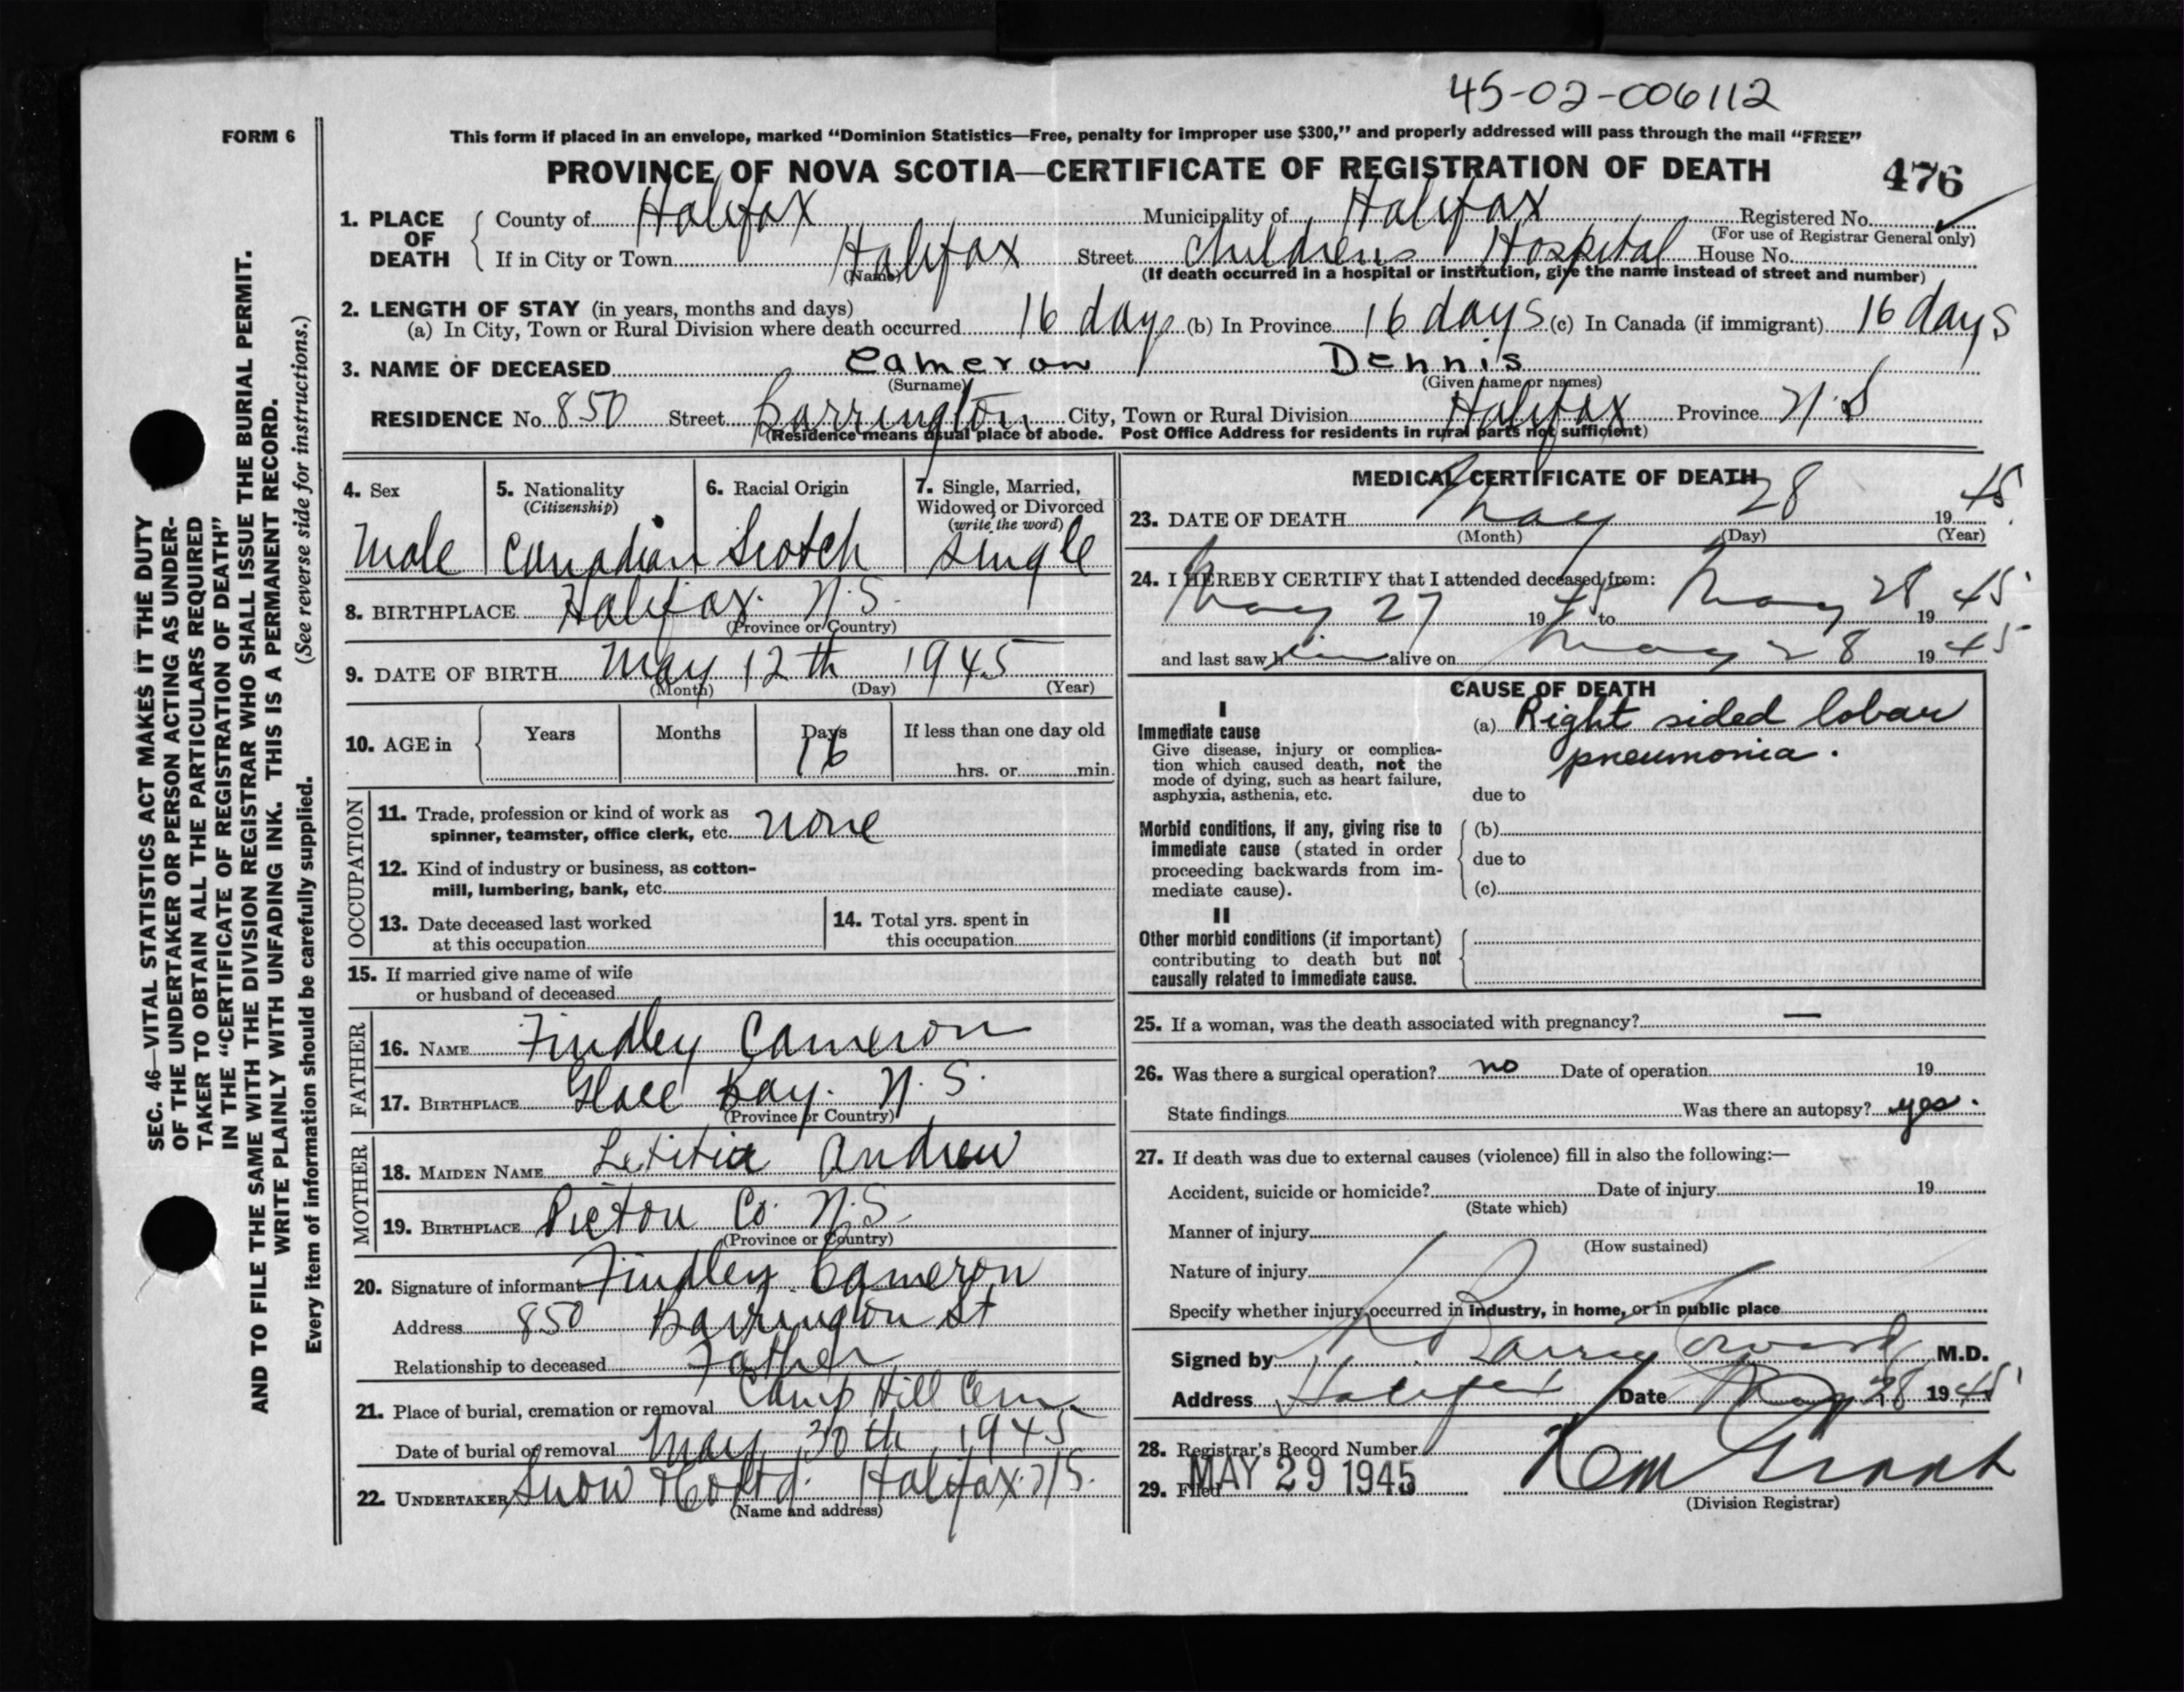 45-02-006112
FORM 6
This form if placed in an envelope, marked “Dominion Statistics—Free, penalty for improper use $300,” and properly addressed will pass through the mail “FREE”
PROVINCE OF NOVA SCOTIA—CERTIFICATE OF REGISTRATION OF DEATH 476
1. PLACE OF DEATH
County of Halifax Municipality of Halifax Registered No.
(For use of Registrar General only)
If in City or Town Halifax Street Childrens Hospital House No.
(Name) (If death occurred in a hospital or institution, give the name instead of street and number)
2. LENGTH OF STAY (in years, months and days)
(a) In City, Town or Rural Division where death occurred 16 days (b) In Province 16 days (c) In Canada (if immigrant) 16 days
3. NAME OF DECEASED Cameron Dennis
(Surname) (Given name or names)
RESIDENCE No. 850 Street Barrington City, Town or Rural Division Halifax Province N.S
(Residence means usual place of abode. Post Office Address for residents in rural parts not sufficient)
4. Sex
Male
5. Nationality
(Citizenship)
Canadian
6. Racial Origin
Scotch
7. Single, Married,
Widowed or Divorced
(write the word)
Single
8. BIRTHPLACE Halifax. N.S.
(Province or Country)
9. DATE OF BIRTH May 12th 1945
(Month) (Day) (Year)
10. AGE in Years Months Days If less than one day old
16 hrs. or min.
OCCUPATION
11. Trade, profession or kind of work as
spinner, teamster, office clerk, etc. none
12. Kind of industry or business, as cotton-
mill, lumbering, bank, etc.
13. Date deceased last worked
at this occupation
14. Total yrs. spent in
this occupation
15. If married give name of wife
or husband of deceased
FATHER
16. NAME Findley Cameron
17. BIRTHPLACE Glace Bay. N.S.
(Province or Country)
MOTHER
18. MAIDEN NAME Letitia Andrew
19. BIRTHPLACE Pictou Co. N.S.
(Province or Country)
20. Signature of informant Findley Cameron
Address 850 Barrington St
Relationship to deceased Father
21. Place of burial, cremation or removal Camp Hill Cem.
Date of burial or removal May 30th 1945
22. UNDERTAKER Snow & Co Ltd. Halifax N.S.
(Name and address)
MEDICAL CERTIFICATE OF DEATH
23. DATE OF DEATH May 28 1945
(Month) (Day) (Year)
24. I HEREBY CERTIFY that I attended deceased from:
May 27 1945 to May 28 1945
and last saw him alive on May 28 1945
CAUSE OF DEATH
I
Immediate cause
Give disease, injury or complica-
tion which caused death, not the
mode of dying, such as heart failure,
asphyxia, asthenia, etc.
(a) Right sided lobar
pneumonia.
due to
Morbid conditions, if any, giving rise to
immediate cause (stated in order
proceeding backwards from im-
mediate cause).
(b)
due to
(c)
II
Other morbid conditions (if important)
contributing to death but not
causally related to immediate cause.
25. If a woman, was the death associated with pregnancy? —
26. Was there a surgical operation? no Date of operation 19
State findings Was there an autopsy? yes.
27. If death was due to external causes (violence) fill in also the following:—
Accident, suicide or homicide? Date of injury 19
(State which)
Manner of injury
(How sustained)
Nature of injury
Specify whether injury occurred in industry, in home, or in public place
Signed by Barry M.D.
Address Halifax Date May 28 1945
28. Registrar's Record Number
29. Filed MAY 29 1945 Grant
(Division Registrar)
SEC. 46—VITAL STATISTICS ACT MAKES IT THE DUTY
OF THE UNDERTAKER OR PERSON ACTING AS UNDER-
TAKER TO OBTAIN ALL THE PARTICULARS REQUIRED
IN THE “CERTIFICATE OF REGISTRATION OF DEATH”
AND TO FILE THE SAME WITH THE DIVISION REGISTRAR WHO SHALL ISSUE THE BURIAL PERMIT.
WRITE PLAINLY WITH UNFADING INK. THIS IS A PERMANENT RECORD.
Every item of information should be carefully supplied. (See reverse side for instructions.)